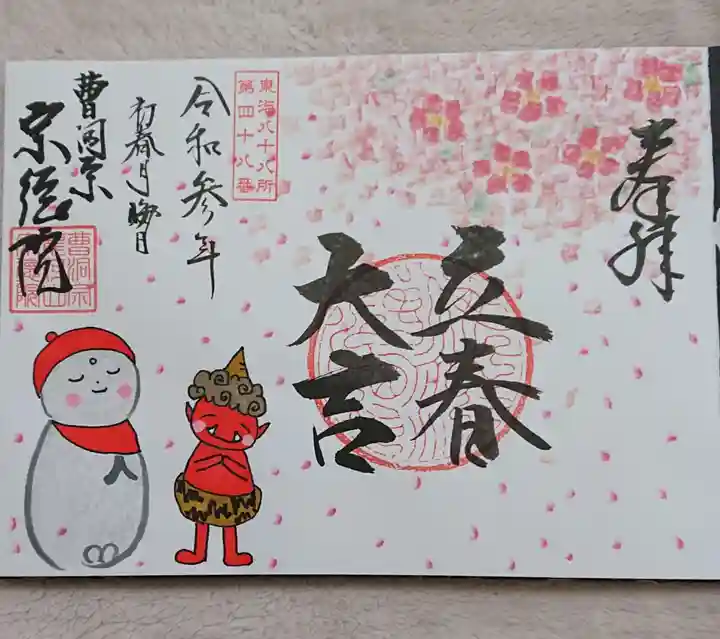 奉拝
立春
大吉
東海八十八所
第四十八番
令和参年
初春月晦日
曹洞宗
宗徳院